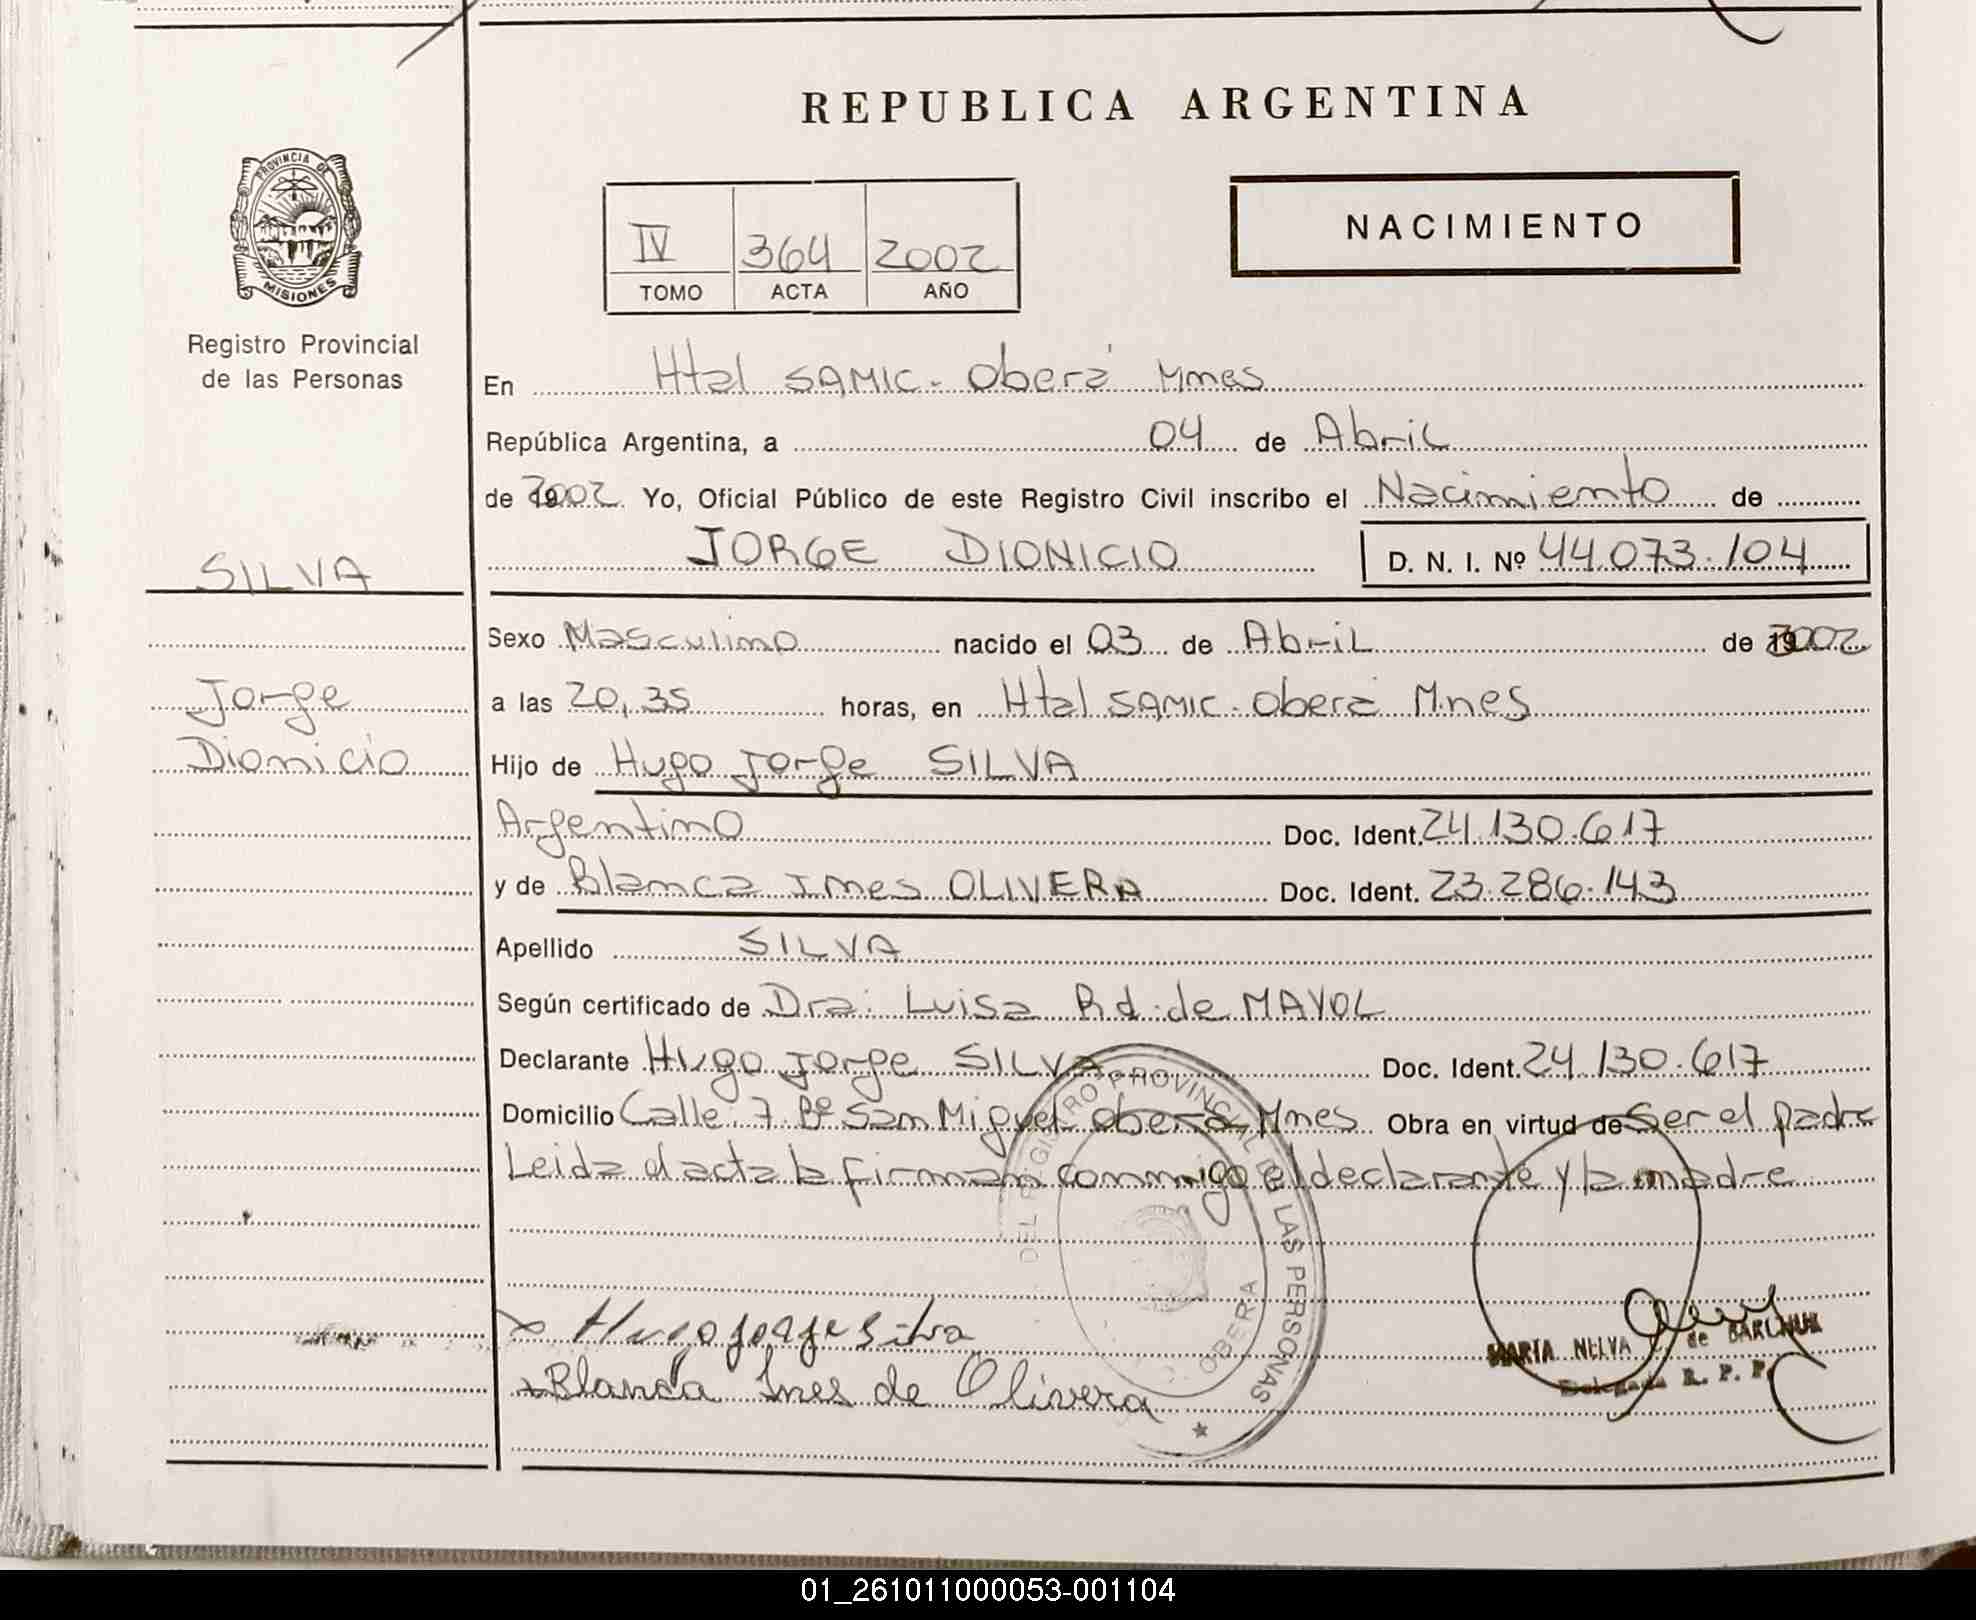 REPUBLICA ARGENTINA
PROVINCIA DE
MISIONES
Registro Provincial
de las Personas
NACIMIENTO
IV 364 2002
TOMO ACTA AÑO
En Htal SAMIC. Oberá Mnes
República Argentina, a 04 de Abril
de 2002 Yo, Oficial Público de este Registro Civil inscribo el Nacimiento de
JORGE DIONICIO D. N. I. Nº 44.073.104
SILVA
Sexo Masculino nacido el 03 de Abril de 2002
Jorge
a las 20,35 horas, en Htal SAMIC. Oberá Mnes
Dionicio
Hijo de Hugo Jorge SILVA
Argentino Doc. Ident. 24.130.617
y de Blanca Ines OLIVERA Doc. Ident. 23.286.143
Apellido SILVA
Según certificado de Dra: Luisa Rd. de MAYOL
Declarante Hugo Jorge SILVA Doc. Ident. 24.130.617
Domicilio Calle 7 Bº San Miguel Oberá Mnes Obra en virtud de Ser el padre
Leida el acta la firman conmigo el declarante y la madre
DEL REGISTRO PROVINCIAL DE LAS PERSONAS
OBERA
x Hugo Jorge Silva
x Blanca Ines de Olivera
MARIA NELVA de
Delegada R. P. P.
01_261011000053-001104